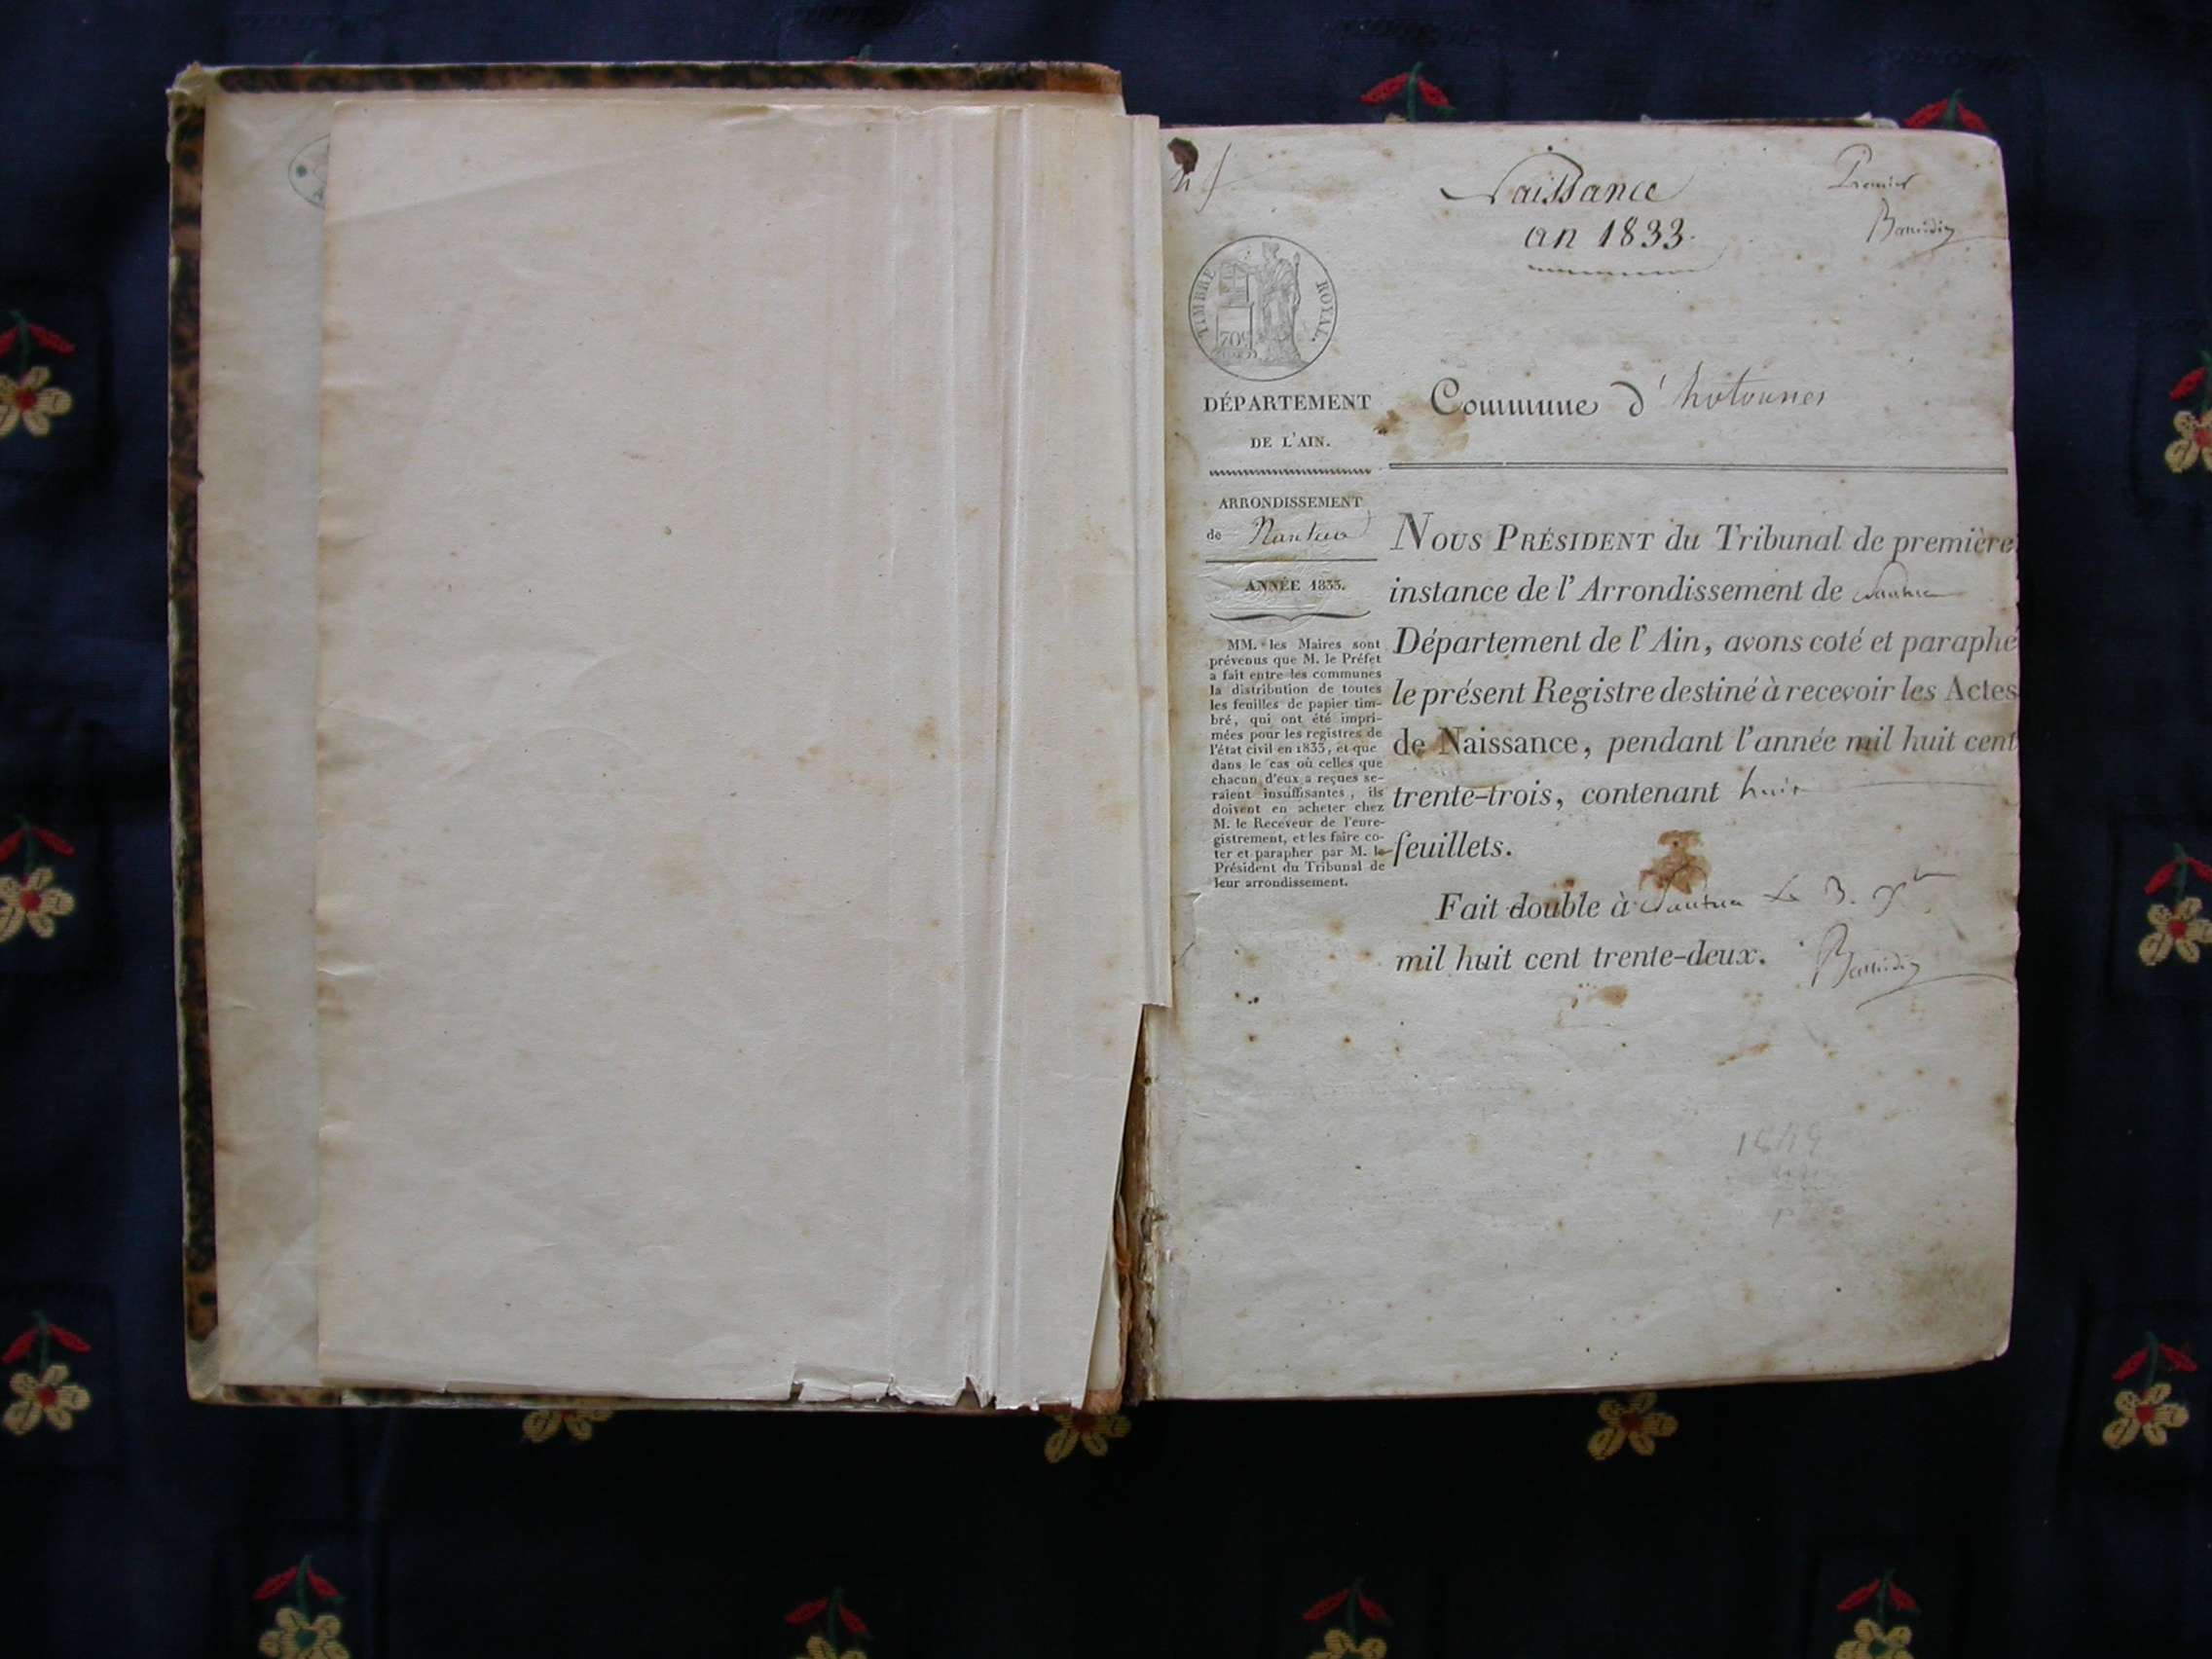 Naissance
an 1833.
Premier
TIMBRE ROYAL.
DÉPARTEMENT
DE L'AIN.
Commune d'hotonnes
ARRONDISSEMENT
de Nantua
ANNÉE 1833.
MM. les Maires sont
prévenus que M. le Préfet
a fait entre les communes
la distribution de toutes
les feuilles de papier tim-
bré, qui ont été impri-
mées pour les registres de
l'état civil en 1833, et que
dans le cas où celles que
chacun d'eux a reçues se-
raient insuffisantes, ils
doivent en acheter chez
M. le Receveur de l'enre-
gistrement, et les faire co-
ter et parapher par M. le
Président du Tribunal de
leur arrondissement.
NOUS PRÉSIDENT du Tribunal de première
instance de l'Arrondissement de Nantua
Département de l'Ain, avons coté et paraphé
le présent Registre destiné à recevoir les Actes
de Naissance, pendant l'année mil huit cent
trente-trois, contenant huit
feuillets.
Fait double à Nantua Le 3.
mil huit cent trente-deux.